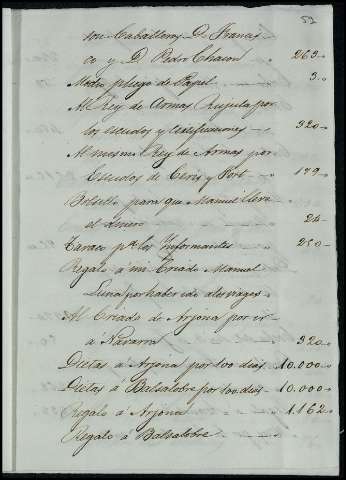 53
tos Caballeros D. Francis
co y D. Pedro Chacon 263..
Medio pliego de Papel 3..
Al Rey de Armas Rujula por
los escudos y certificaciones 320..
Al mismo Rey de Armas por
Escudos de Cera y Port 179..
Bolsillo para que Manuel lleve
el dinero 24..
Tabaco p.ª los Informantes 250..
Regalo á mi Criado Manuel
Luna por haber ido al viage
Al Criado de Arjona por ir
á Navarra 320..
Dietas á Arjona por 100 dias 10.000..
Dietas á Balsalobre por 100 dias 10.000..
Regalo á Arjona 1.162..
Regalo á Balsalobre